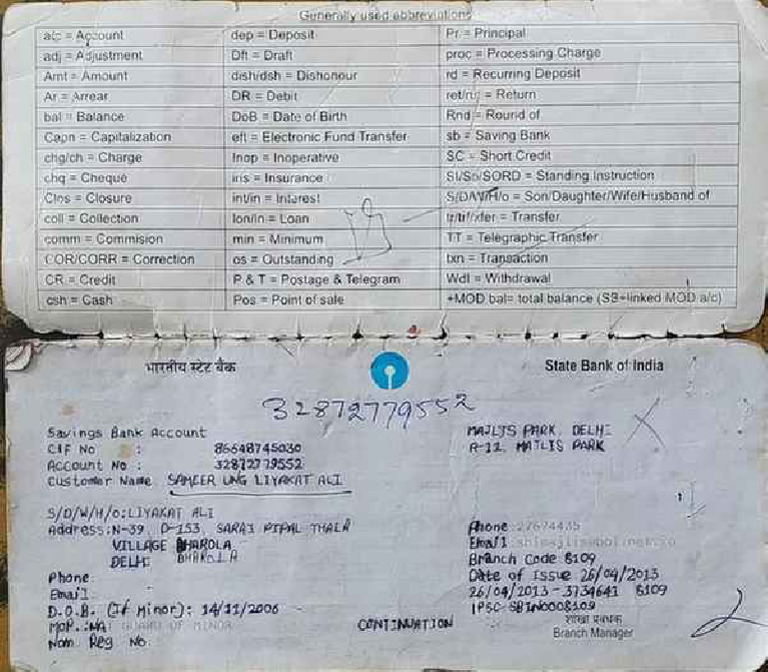 Generally used abbreviations
a/c = Account dep = Deposit Pr = Principal
adj = Adjustment Dft = Draft proc = Processing Charge
Amt = Amount dish/dsh = Dishonour rd = Recurring Deposit
Ar = Arrear DR = Debit ret/rtn = Return
bal = Balance DoB = Date of Birth Rnd = Round of
Capn = Capitalization eft = Electronic Fund Transfer sb = Saving Bank
chg/ch = Charge Inop = Inoperative SC = Short Credit
chq = Cheque ins = Insurance SI/So/SORD = Standing Instruction
Clos = Closure int/in = Interest S/D/W/H/o = Son/Daughter/Wife/Husband of
coll = Collection lon/ln = Loan tr/tif/xfer = Transfer
comm = Commision min = Minimum TT = Telegraphic Transfer
COR/CORR = Correction os = Outstanding txn = Transaction
CR = Credit P & T = Postage & Telegram Wdl = Withdrawal
csh = Cash Pos = Point of sale +MOD bal= total balance (SB+linked MOD a/c)
भारतीय स्टेट बैंक State Bank of India
32872779552
Savings Bank Account MAJLIS PARK, DELHI
CIF No : 86648745030 A-12, MAJLIS PARK
Account No : 32872779552
Customer Name SAMEER UNG LIYAKAT ALI
S/D/W/H/o: LIYAKAT ALI
Address: N-39, D-153, SARAI PIPAL THALA Phone 27674435
VILLAGE BHAROLA Email
DELHI BHAROLA Branch Code 8109
Phone Date of Issue 26/04/2013
Email 26/04/2013-3734641 8109
D.O.B. (If Minor): 14/11/2006 IFSC SBIN0008109
MOP.:NA GUARD OF MINOR CONTINUATION शाखा प्रबंधक
Nom Reg No. Branch Manager